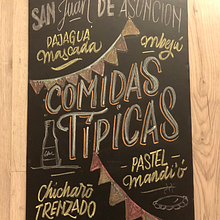 SAN Juan DE ASUNCIÓN
PAJAGUA
Mascada
Mbejú
COMIDAS
TÍPICAS
PASTEL
Mandi'ó
Chicharõ
TRENZADO